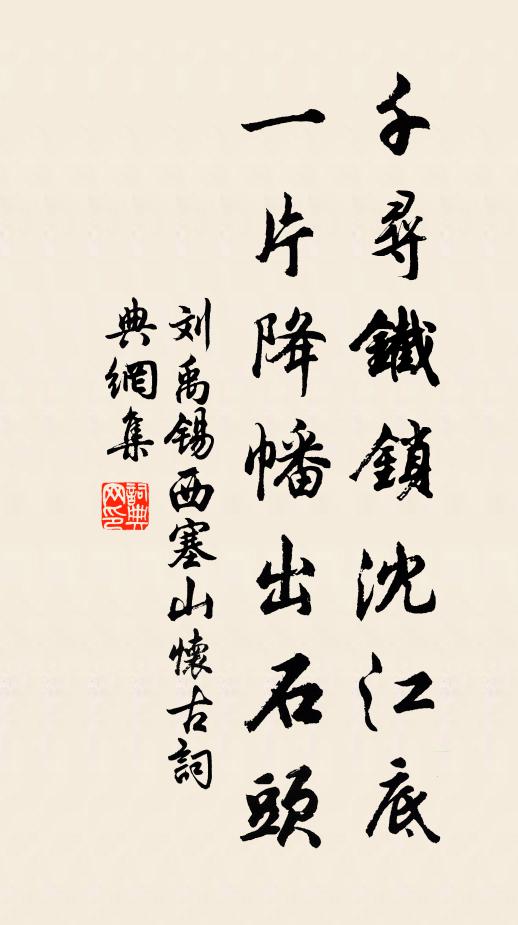 千尋鐵鎖沈江底
一片降幡出石頭
刘禹锡西塞山懷古詞
典網集
詞典
网印